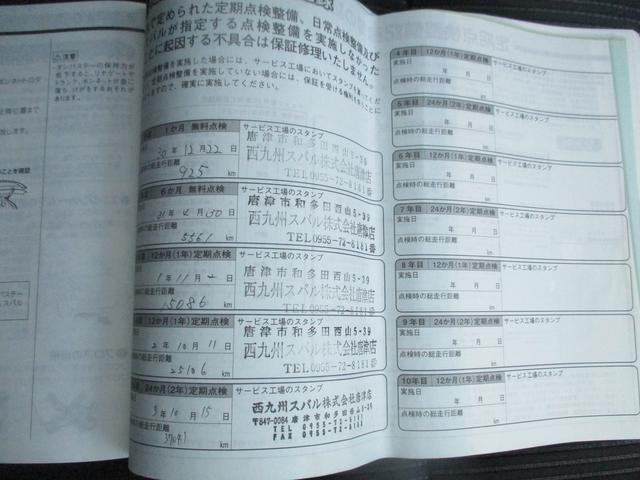 ⚠注意
で定められた定期点検整備、日常点検整備及び
バルが指定する点検整備を実施しなかった
とに起因する不具合は保証修理いたしません。
検整備を実施した場合には、サービス工場においてスタンプを
定期点検整備を実施していない場合には、保証を受ける権利を
ますので、確実に実施してください。
1か月 無料点検
サービス工場のスタンプ
20年12月22日
総走行距離
925 km
唐津市和多田西山5-39
西九州スバル株式会社唐津店
TEL0955-72-8181番
6か月 無料点検
サービス工場のスタンプ
31年4月30日
総走行距離
5561 km
唐津市和多田西山5-39
西九州スバル株式会社唐津店
TEL0955-72-8181番
12か月(1年)定期点検
サービス工場のスタンプ
1年11月 日
総走行距離
15086 km
唐津市和多田西山5-39
西九州スバル株式会社唐津店
TEL0955-72-8181番
12か月(1年)定期点検
サービス工場のスタンプ
2年10月11日
の総走行距離
25106 km
唐津市和多田西山5-39
西九州スバル株式会社唐津店
TEL0955-72-8181番
24か月(2年)定期点検
サービス工場のスタンプ
3年10月15日
の総走行距離
km
西九州スバル株式会社唐津店
〒847-0084 唐津市和多田西山5-39
TEL
FAX
4年目 12か月(1年)定期点検
サービス工場のスタンプ
実施日
年 月 日
点検時の総走行距離
km
5年目 24か月(2年)定期点検
サービス工場のスタンプ
実施日
年 月 日
点検時の総走行距離
km
6年目 12か月(1年)定期点検
サービス工場のスタンプ
実施日
年 月 日
点検時の総走行距離
km
7年目 24か月(2年)定期点検
サービス工場のスタンプ
実施日
年 月 日
点検時の総走行距離
km
8年目 12か月(1年)定期点検
サービス工場のスタンプ
実施日
年 月 日
点検時の総走行距離
km
9年目 24か月(2年)定期点検
サービス工場のスタンプ
実施日
年 月 日
点検時の総走行距離
km
10年目 12か月(1年)定期点検
サービス工場のスタンプ
実施日
年 月 日
点検時の総走行距離
km